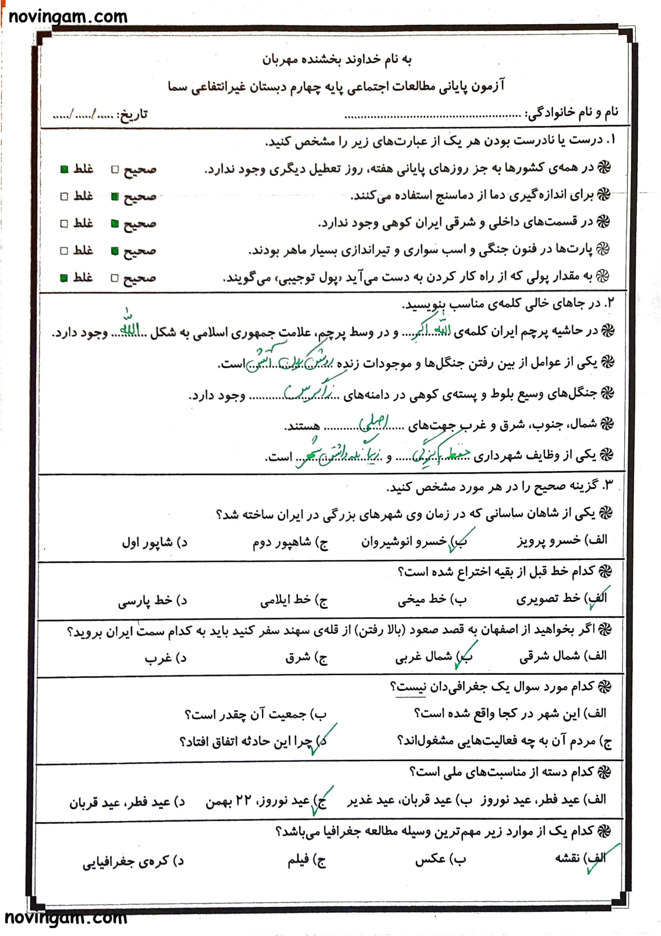 novingam.com
به نام خداوند بخشنده مهربان
آزمون پایانی مطالعات اجتماعی پایه چهارم دبستان غیرانتفاعی سما
نام و نام خانوادگی: ........................................ تاریخ: ...../...../.....
۱. درست یا نادرست بودن هر یک از عبارت‌های زیر را مشخص کنید.
در همه‌ی کشورها به جز روزهای پایانی هفته، روز تعطیل دیگری وجود ندارد. صحیح □ غلط ■
برای اندازه‌گیری دما از دماسنج استفاده می‌کنند. صحیح ■ غلط □
در قسمت‌های داخلی و شرقی ایران کوهی وجود ندارد. صحیح ■ غلط □
پارت‌ها در فنون جنگی و اسب سواری و تیراندازی بسیار ماهر بودند. صحیح ■ غلط □
به مقدار پولی که از راه کار کردن به دست می‌آید «پول توجیبی» می‌گویند. صحیح □ غلط ■
۲. در جاهای خالی کلمه‌ی مناسب بنویسید.
در حاشیه پرچم ایران کلمه‌ی الله اکبر و در وسط پرچم، علامت جمهوری اسلامی به شکل الله وجود دارد.
یکی از عوامل از بین رفتن جنگل‌ها و موجودات زنده روشن کردن آتش است.
جنگل‌های وسیع بلوط و پسته‌ی کوهی در دامنه‌های زاگرس وجود دارد.
شمال، جنوب، شرق و غرب جهت‌های اصلی هستند.
یکی از وظایف شهرداری حفظ پاکیزگی و زیبا نگه داشتن شهر است.
۳. گزینه صحیح را در هر مورد مشخص کنید.
یکی از شاهان ساسانی که در زمان وی شهرهای بزرگی در ایران ساخته شد؟
الف) خسرو پرویز ب) خسرو انوشیروان ج) شاهپور دوم د) شاپور اول
کدام خط قبل از بقیه اختراع شده است؟
الف) خط تصویری ب) خط میخی ج) خط ایلامی د) خط پارسی
اگر بخواهید از اصفهان به قصد صعود (بالا رفتن) از قله‌ی سهند سفر کنید باید به کدام سمت ایران بروید؟
الف) شمال شرقی ب) شمال غربی ج) شرق د) غرب
کدام مورد سوال یک جغرافی‌دان نیست؟
الف) این شهر در کجا واقع شده است؟ ب) جمعیت آن چقدر است؟
ج) مردم آن به چه فعالیت‌هایی مشغول‌اند؟ د) چرا این حادثه اتفاق افتاد؟
کدام دسته از مناسبت‌های ملی است؟
الف) عید فطر، عید نوروز ب) عید قربان، عید غدیر ج) عید نوروز، ۲۲ بهمن د) عید فطر، عید قربان
کدام یک از موارد زیر مهم‌ترین وسیله مطالعه جغرافیا می‌باشد؟
الف) نقشه ب) عکس ج) فیلم د) کره‌ی جغرافیایی
novingam.com